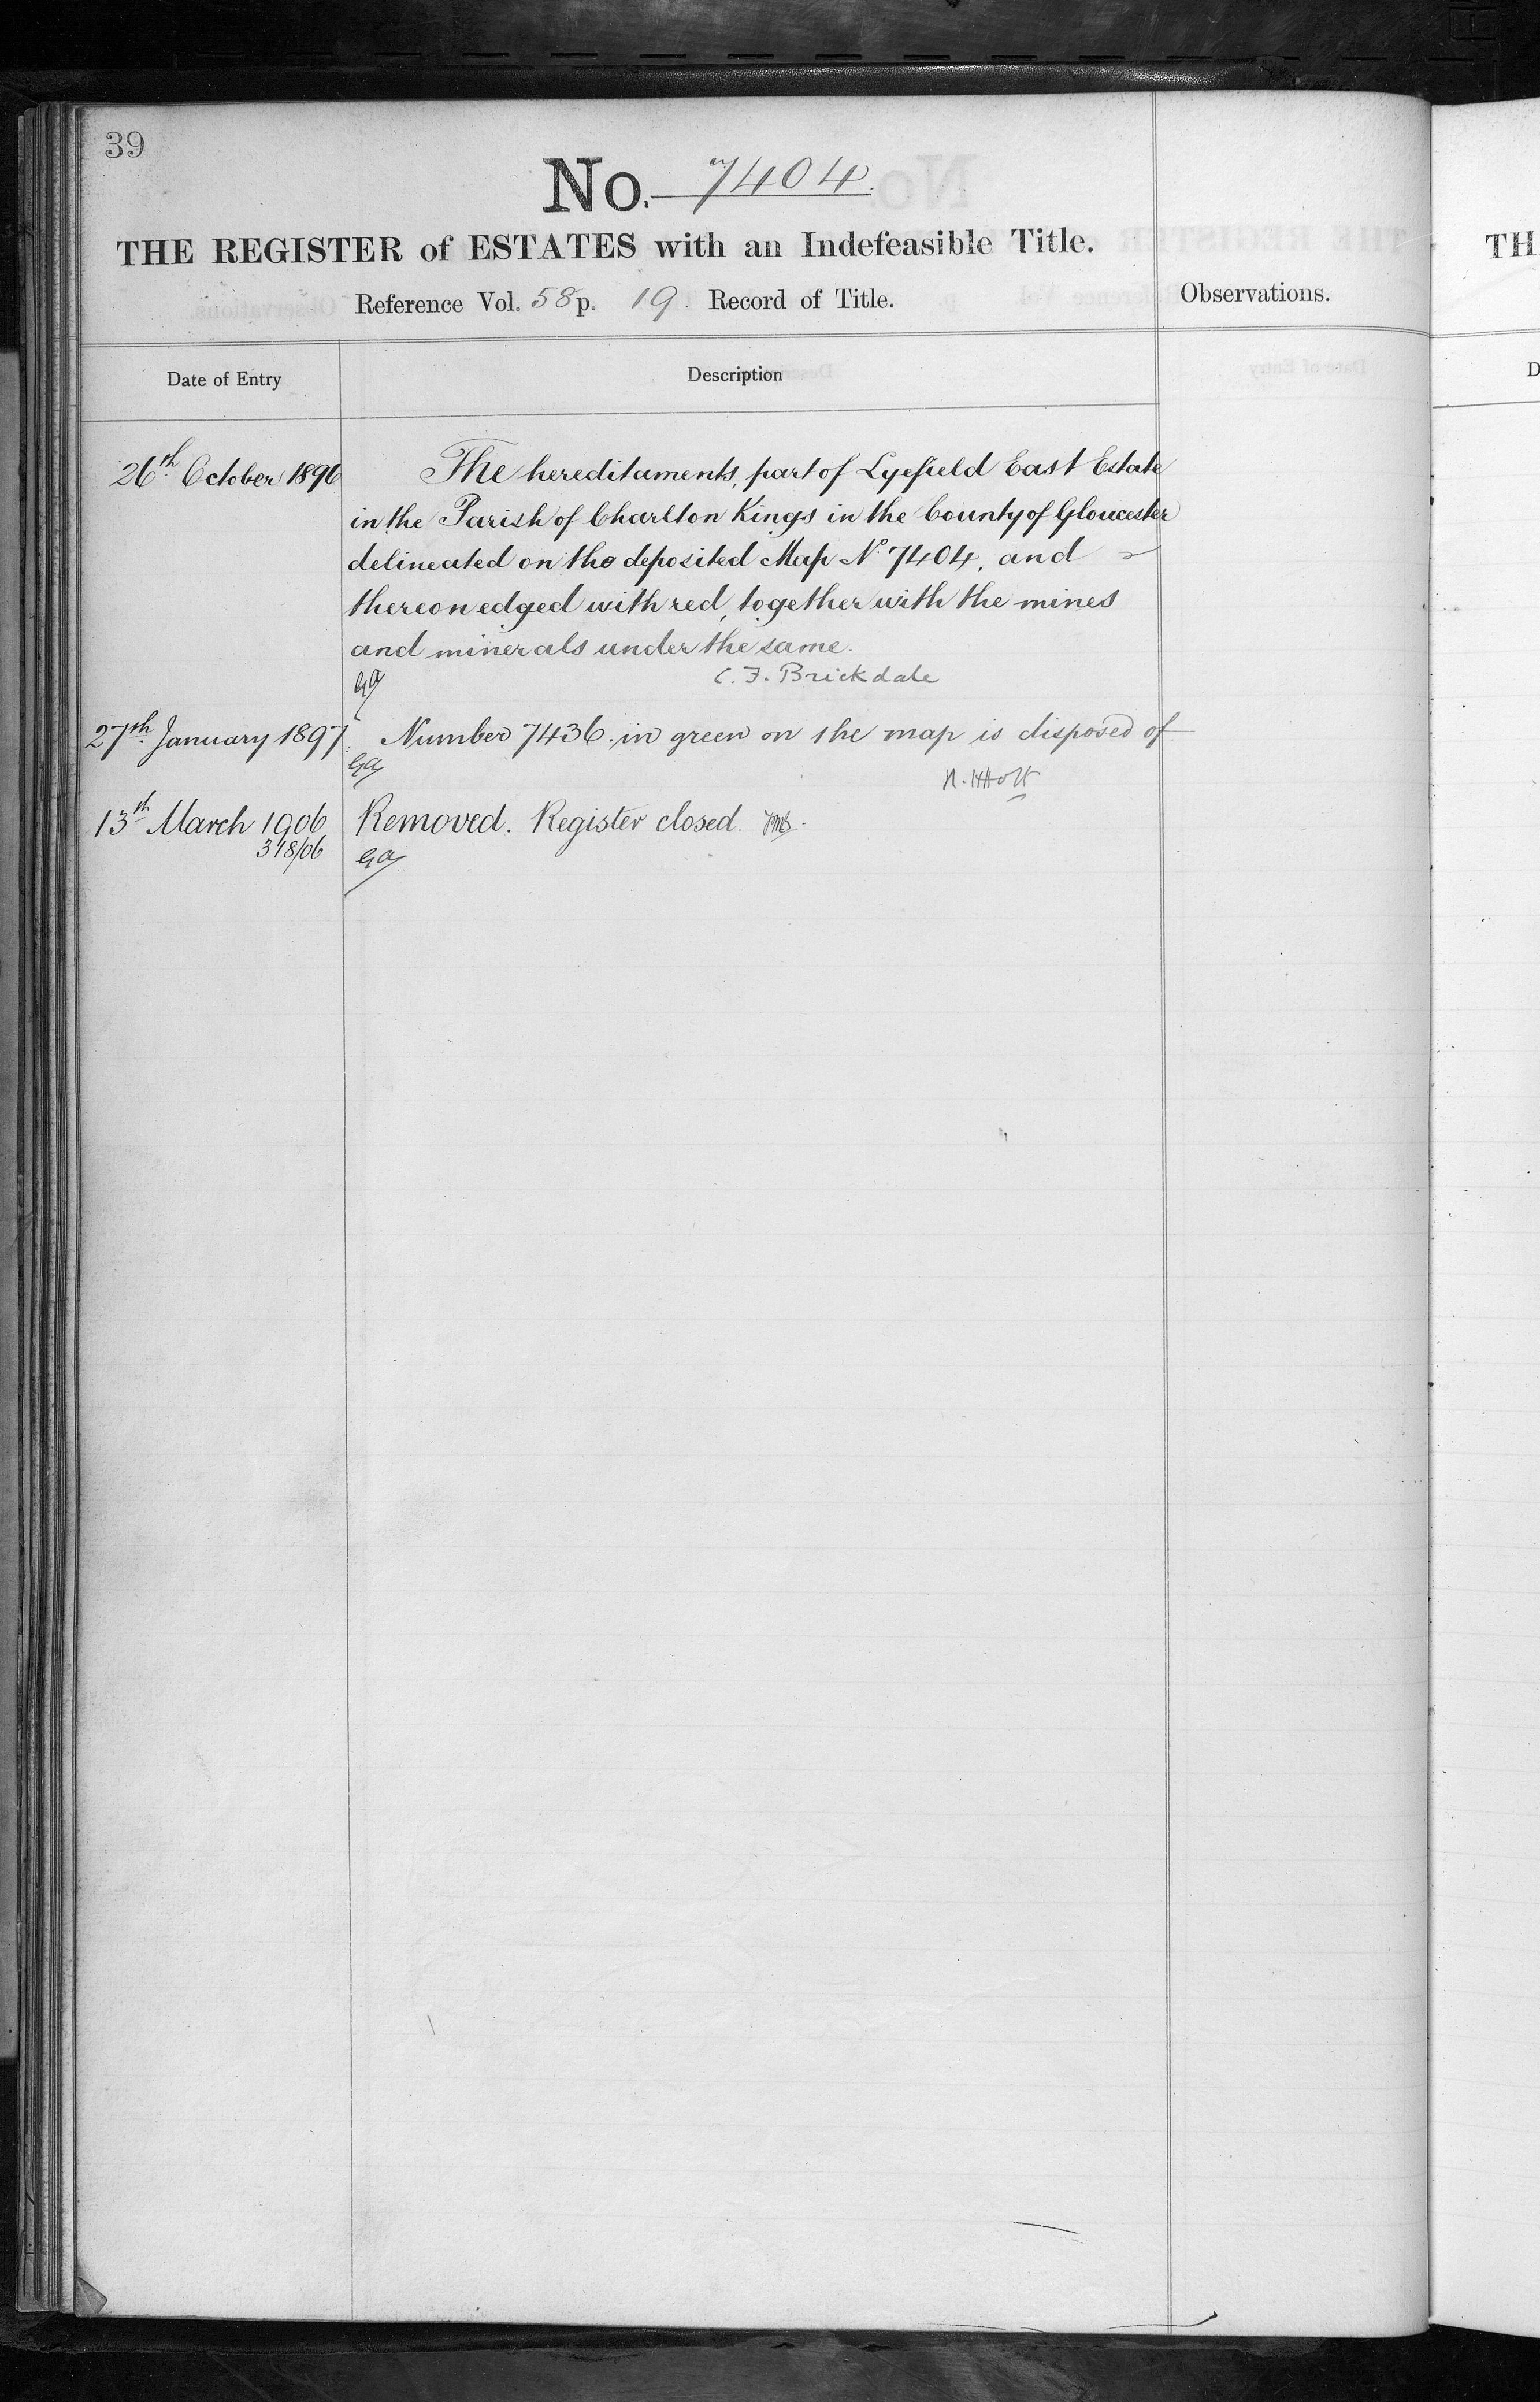 39
No. 7404.
THE REGISTER of ESTATES with an Indefeasible Title.
Reference Vol. 58 p. 19 Record of Title.
Observations.
Date of Entry
Description
26th October 1896
The hereditaments, part of Lyefield East Estate
in the Parish of Charlton Kings in the County of Gloucester
delineated on the deposited Map No. 7404, and
thereon edged with red, together with the mines
and minerals under the same.
C. F. Brickdale
27th January 1897.
Number 7436 in green on the map is disposed of
13th March 1906
Removed. Register closed.
318/06
TH
D